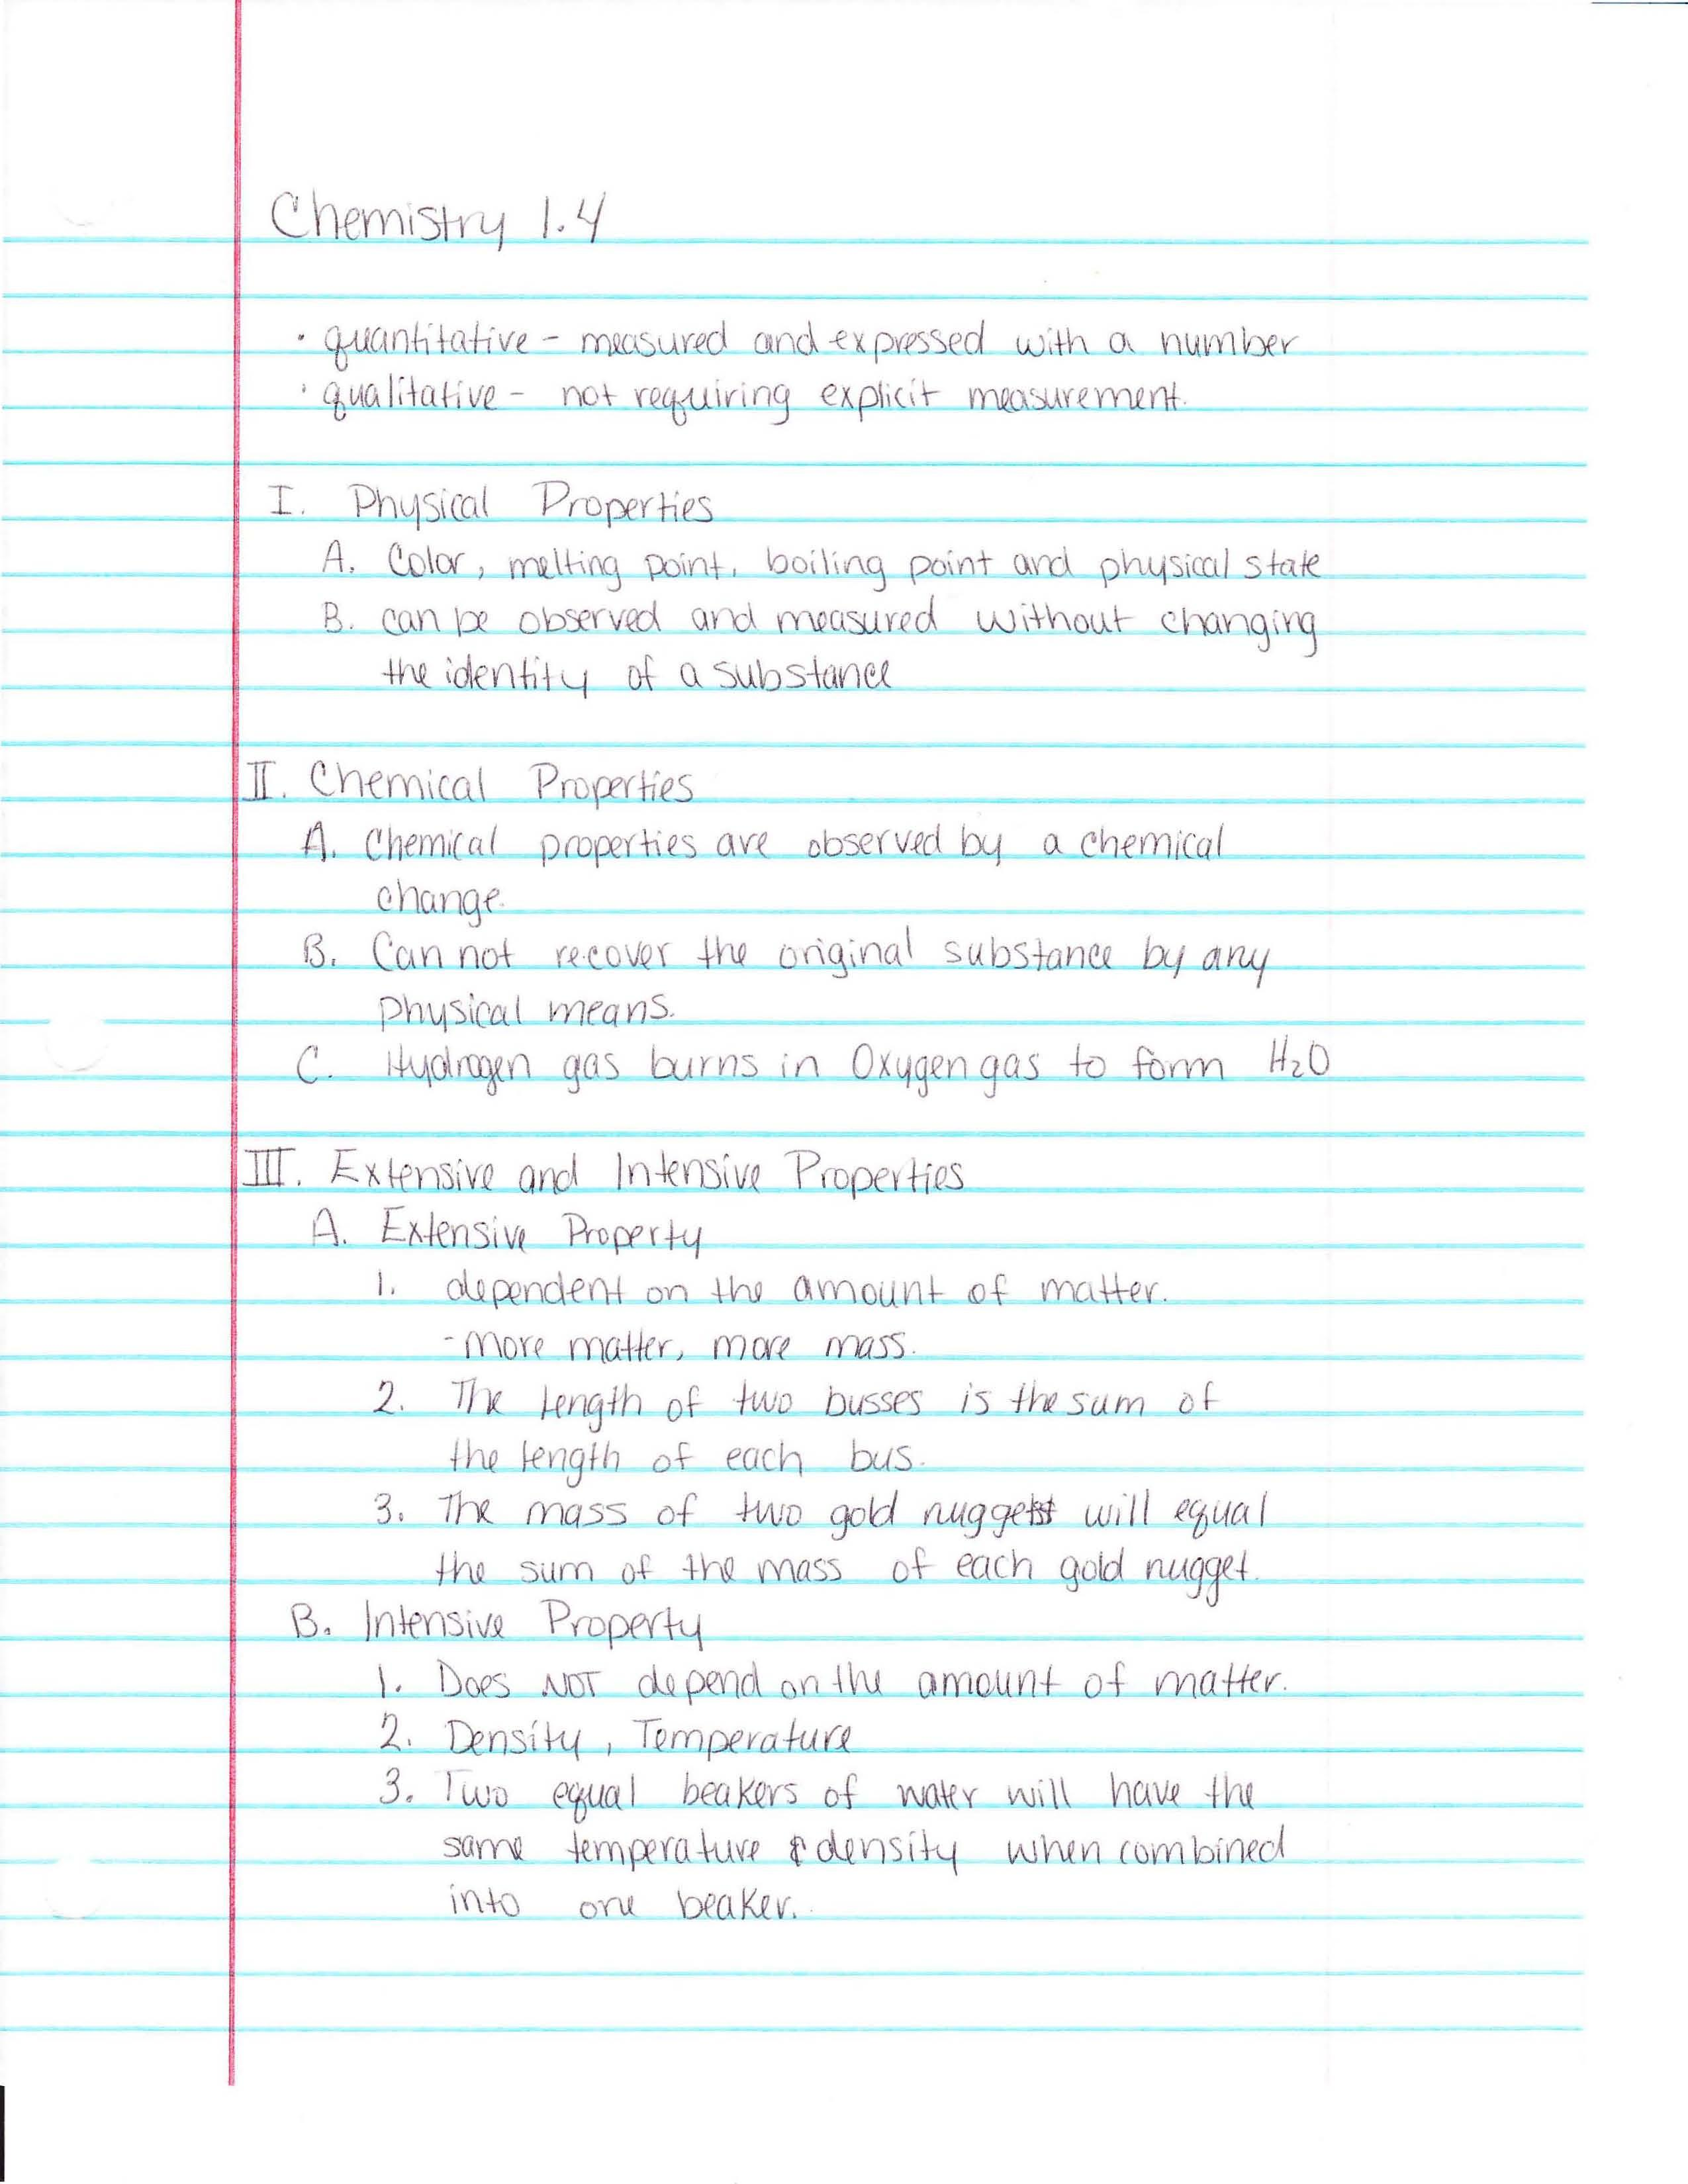 Chemistry 1.4
· quantitative - measured and expressed with a number
· qualitative - not requiring explicit measurement.
I. Physical Properties
A. Color, melting point, boiling point and physical state
B. can be observed and measured without changing
the identity of a substance
II. Chemical Properties
A. Chemical properties are observed by a chemical
change.
B. Can not recover the original substance by any
physical means.
C. Hydrogen gas burns in Oxygen gas to form H₂O
III. Extensive and Intensive Properties
A. Extensive Property
1. dependent on the amount of matter.
- more matter, more mass.
2. The length of two busses is the sum of
the length of each bus.
3. The mass of two gold nuggets will equal
the sum of the mass of each gold nugget.
B. Intensive Property
1. Does NOT depend on the amount of matter.
2. Density, Temperature
3. Two equal beakers of water will have the
same temperature & density when combined
into one beaker.